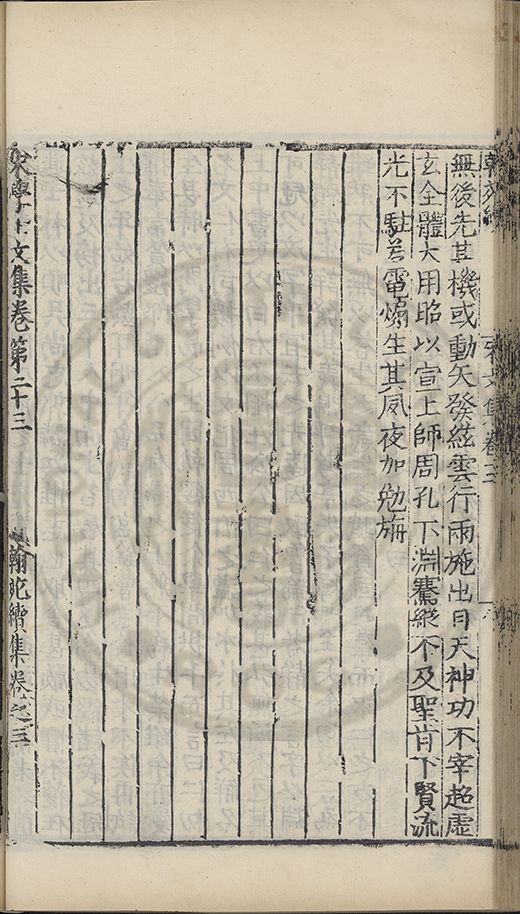 無後先其機或動矢發絃雲行雨施出日天神功不宰超虛
玄全體大用昭以宣上師周孔下淵騫縱不及聖肯下賢流
光不駐若電爚生其夙夜加勉旃
宋學士文集卷第二十三 翰苑續集卷之三